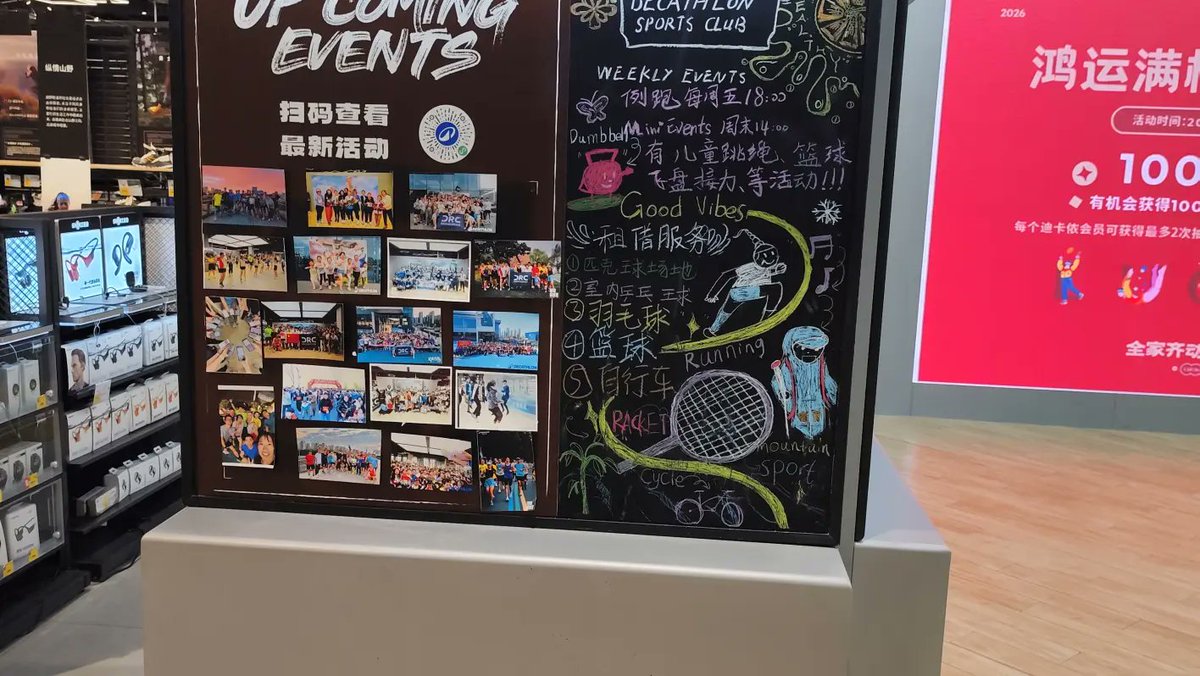 UPCOMING
EVENTS
扫码查看
最新活动
DECATHLON
SPORTS CLUB
HEALTHY
WEEKLY EVENTS
例跑 每周五18:00
Dumbbell
Mini Events 周末14:00
有儿童跳绳、篮球
飞盘接力、等活动!!!
Good Vibes
租借服务
①匹克球场地
②室内乒乓球
③羽毛球
④篮球
⑤自行车
Running
RACKET
mountain
sport
Cycle
DRC
DRC
DRC
纵情山野
2026
鸿运满
活动时间:20
100
有机会获得100
每个迪卡侬会员可获得最多2次抽
全家齐动